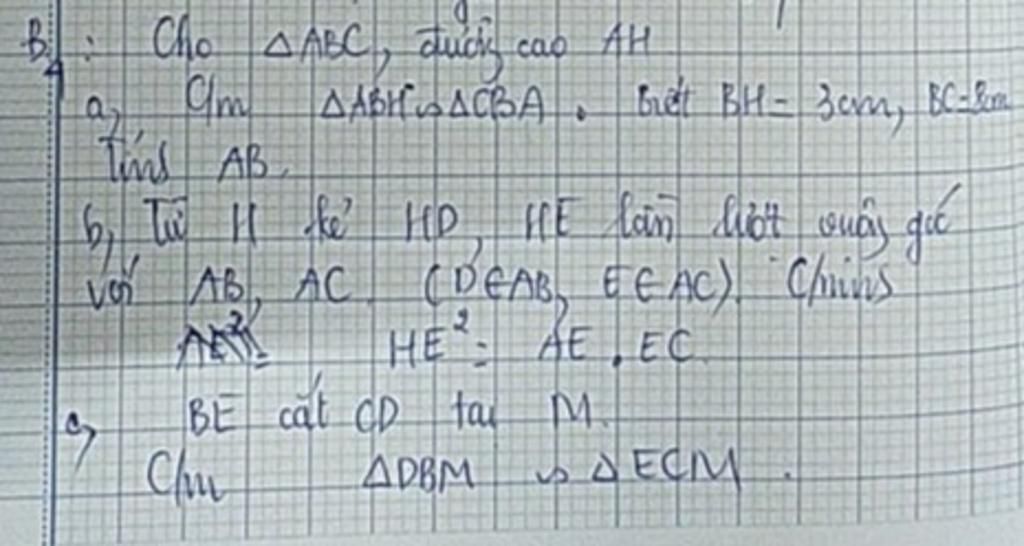 B4: Cho △ABC, đường cao AH
a, C/m △ABH ∽ △CBA. Biết BH = 3cm, BC = 8cm
Tính AB.
b, Từ H kẻ HD, HE lần lượt vuông góc
với AB, AC (D∈AB, E∈AC). C/minh
HE² = AE.EC
c, BE cắt CD tại M.
C/m △DBM ∽ △ECM.